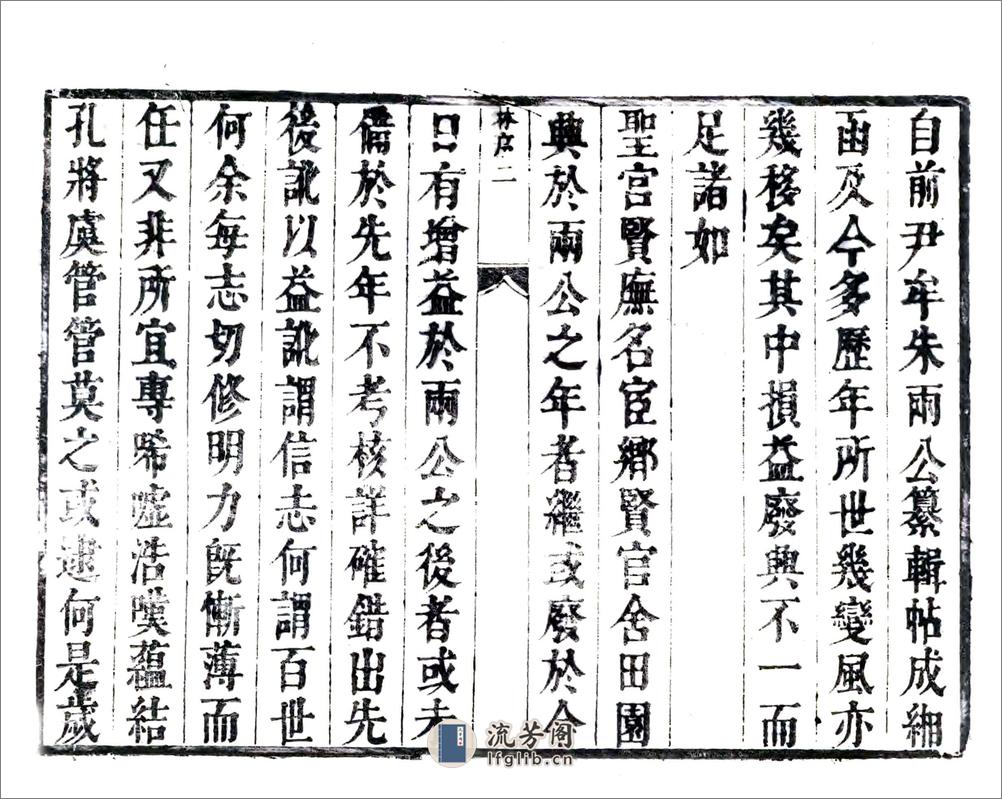 自前尹牟朱兩公纂輯帖成緗
函及今多歷年所世幾變風亦
幾移矣其中損益廢興不一而
足諸如
聖宮賢廡名宦鄉賢官舍田園
典於兩公之年者繼或廢於今
日有增益於兩公之後者或未
備於先年不考核詳確錯出先
後訛以益訛謂信志何謂百世
何余每志切修明力旣慚薄而
任又非所宜專唏噓浩嘆蘊結
孔將處管管莫之或逮何是歲
林序 二
流芳阁
lfglib.cn